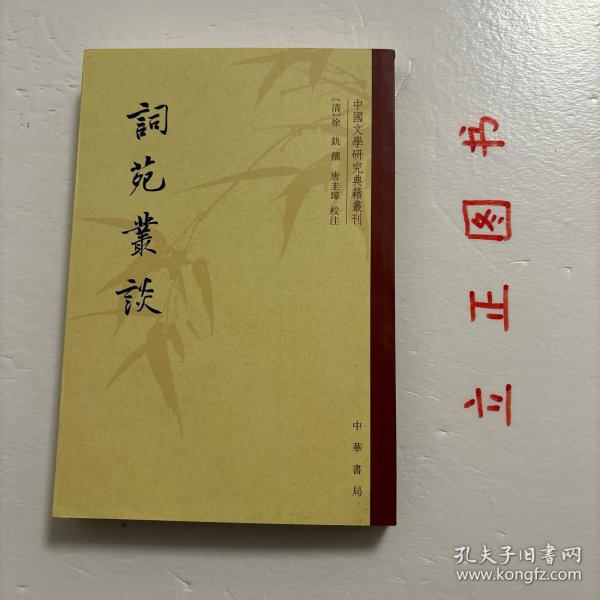 中國文學研究典籍叢刊
〔清〕徐 釚 撰 唐圭璋 校注
詞苑叢談
中華書局
立正图书
孔夫子旧书网
www.kongfz.com